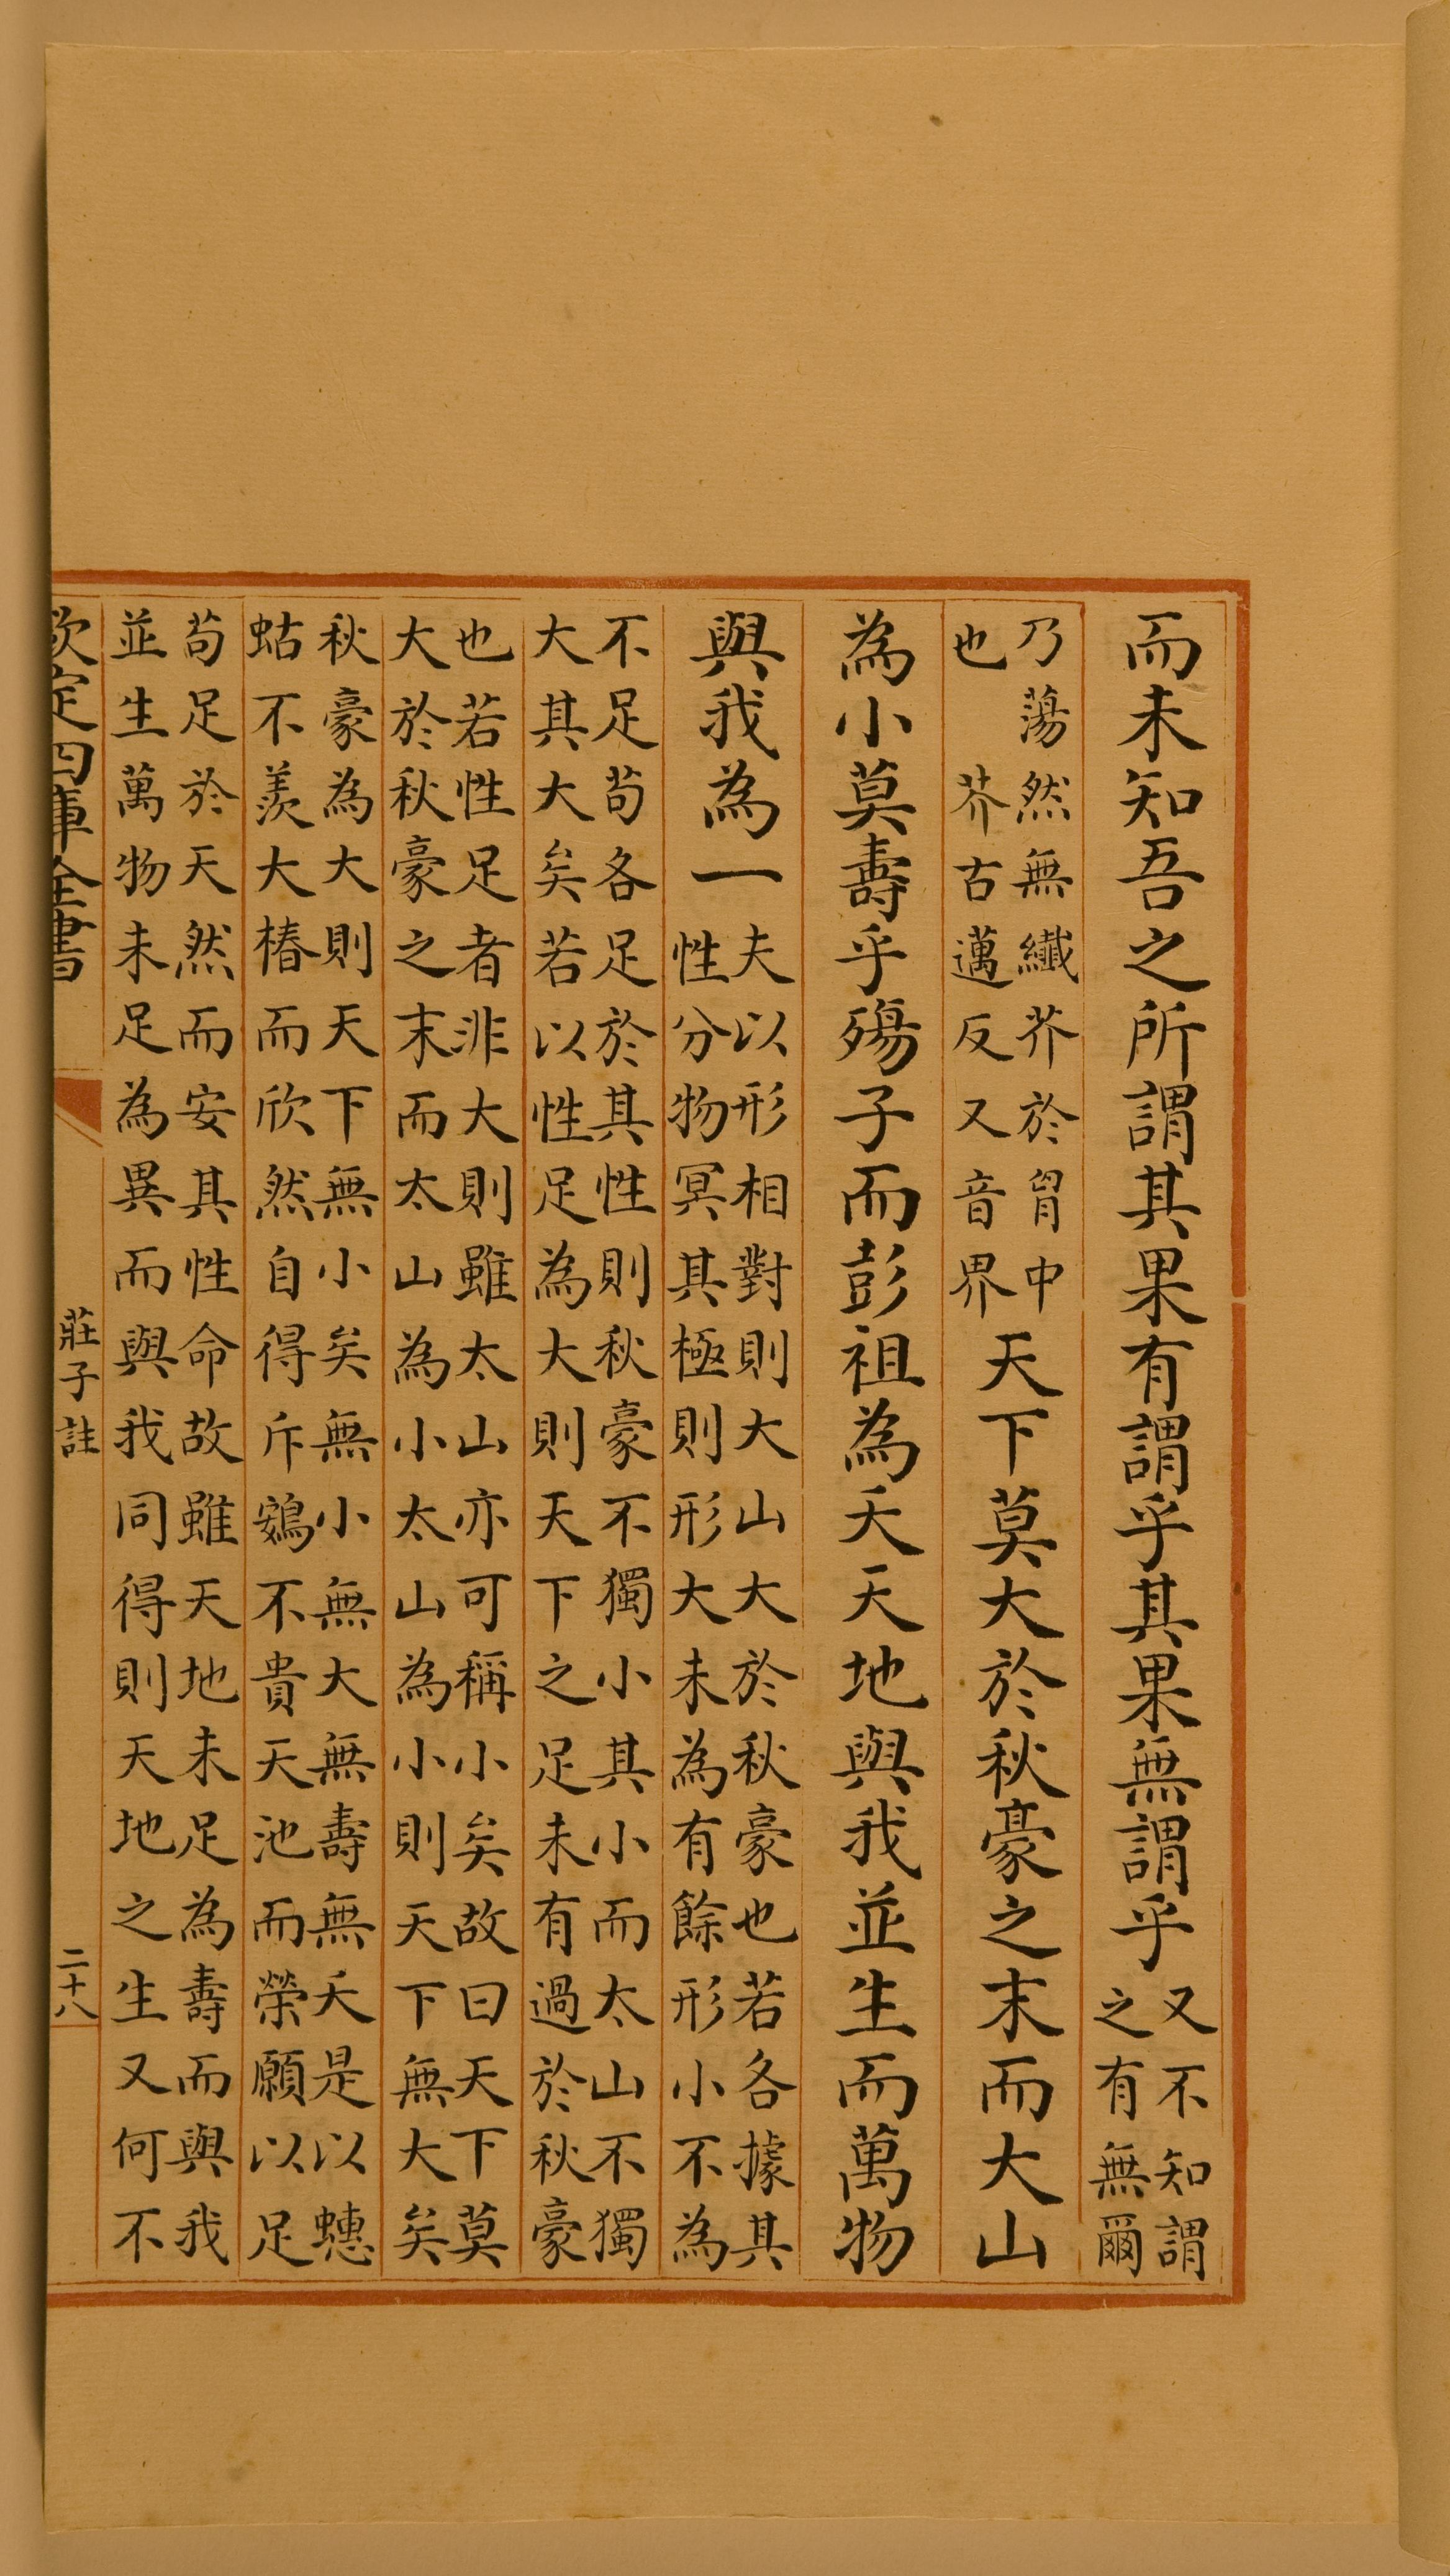 而未知吾之所謂其果有謂乎其果無謂乎又不知謂
之有無爾
乃蕩然無纖芥於胷中
也 芥古邁反又音界
天下莫大於秋豪之末而大山
為小莫壽乎殤子而彭祖為夭天地與我並生而萬物
與我為一夫以形相對則大山大於秋豪也若各據其
性分物冥其極則形大未為有餘形小不為
不足苟各足於其性則秋豪不獨小其小而太山不獨
大其大矣若以性足為大則天下之足未有過於秋豪
也若性足者非大則雖太山亦可稱小矣故曰天下莫
大於秋豪之末而太山為小太山為小則天下無大矣
秋豪為大則天下無小矣無小無大無壽無夭是以蟪
蛄不羨大椿而欣然自得斥鴳不貴天池而榮願以足
苟足於天然而安其性命故雖天地未足為壽而與我
並生萬物未足為異而與我同得則天地之生又何不
欽定四庫全書
莊子註
二十八